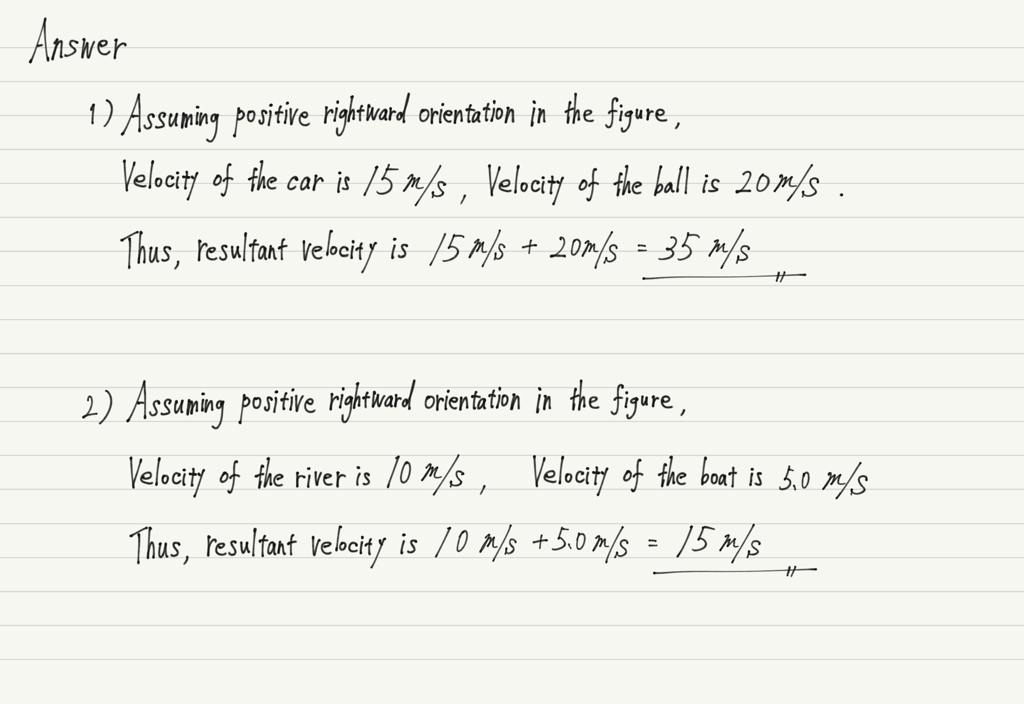 Answer
1) Assuming positive rightward orientation in the figure,
Velocity of the car is 15 m/s, Velocity of the ball is 20 m/s.
Thus, resultant velocity is 15 m/s + 20 m/s = 35 m/s
2) Assuming positive rightward orientation in the figure,
Velocity of the river is 10 m/s, Velocity of the boat is 5.0 m/s
Thus, resultant velocity is 10 m/s + 5.0 m/s = 15 m/s